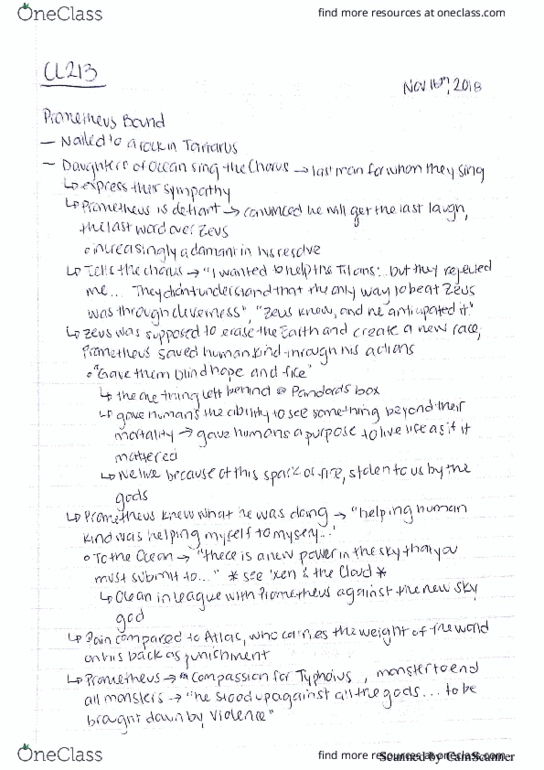 OneClass
find more resources at oneclass.com
CL213
Nov 16th, 2018
Prometheus Bound
— Nailed to a rock in Tartarus
— Daughters of Ocean sing the Chorus → last man for whom they sing
↳ express their sympathy
↳ Prometheus is defiant → convinced he will get the last laugh,
the last word over Zeus
o increasingly adamant in his resolve
↳ Tells the chorus → "I wanted to help the Titans... but they rejected
me... They didn't understand that the only way to beat Zeus
was through cleverness", "Zeus knew, and he anticipated it."
↳ Zeus was supposed to erase the Earth and create a new race,
Prometheus saved humankind through his actions
o "Gave them blind hope and fire"
↳ the one thing left behind @ Pandora's box
↳ gave humans the ability to see something beyond their
mortality → gave humans a purpose to live life as if it
mattered
↳ We live because of this spark of fire, stolen to us by the
gods
↳ Prometheus knew what he was doing → "helping human
kind was helping myself to misery..."
o To the Ocean → "there is a new power in the sky that you
must submit to..." * see 'Xen & the Cloud *
↳ Ocean in league with Prometheus against the new sky
god
↳ Pain compared to Atlas, who carries the weight of the world
on his back as punishment
↳ Prometheus → compassion for Typhoius, monster to end
all monsters → "he stood up against all the gods... to be
brought down by violence"
OneClass
find more resources at oneclass.com
Scanned by CamScanner